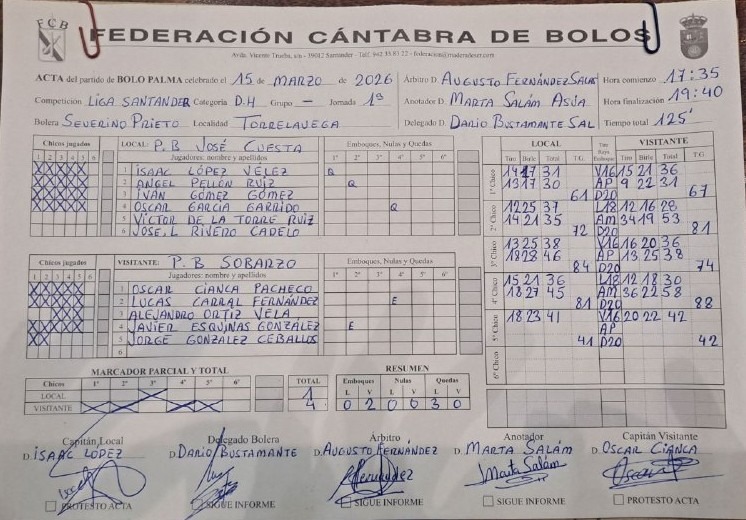 FCB
FEDERACIÓN CÁNTABRA DE BOLOS
Avda. Vicente Trueba, s/n - 39012 Santander - Telf. 942 33 83 22 - federacion@maderadeser.com
ACTA del partido de BOLO PALMA celebrado el 15 de MARZO de 2026 Árbitro D. AUGUSTO FERNÁNDEZ SALAS Hora comienzo 17:35
Competición LIGA SANTANDER Categoría D.H Grupo - Jornada 1ª Anotador D. MARTA SALÁM ASUA Hora finalización 19:40
Bolera SEVERINO PRIETO Localidad TORRELAVEGA Delegado D. DARIO BUSTAMANTE SAL Tiempo total 125'
Chicos jugados LOCAL: P.B JOSÉ CUESTA Emboques, Nulas y Quedas
1 2 3 4 5 6 Jugadores: nombre y apellidos 1º 2º 3º 4º 5º 6º
1 ISAAC LÓPEZ VÉLEZ Q
2 ANGEL PELLÓN RUIZ Q
3 IVAN GÓMEZ GÓMEZ
4 OSCAR GARCIA GARRIDO Q
5 VÍCTOR DE LA TORRE RUIZ
6 JOSE L RIVERO CADELO
Chicos jugados VISITANTE: P.B SOBARZO Emboques, Nulas y Quedas
1 2 3 4 5 6 Jugadores: nombre y apellidos 1º 2º 3º 4º 5º 6º
1 OSCAR CIANCA PACHECO
2 LUCAS CARRAL FERNÁNDEZ E
3 ALEJANDRO ORTIZ VELA
4 JAVIER ESQUINAS GONZÁLEZ E
5 JORGE GONZALEZ CEBALLOS
6
LOCAL VISITANTE
Tiro Birle Total T.G. Tiro Raya Emboque Tiro Birle Total T.G.
1º Chico 14 17 31 V16 15 21 36
13 17 30 AP 9 22 31
61 D20 67
2º Chico 12 25 37 L18 12 16 28
14 21 35 AM 34 19 53
72 D20 81
3º Chico 13 25 38 V16 16 20 36
18 28 46 AP 13 25 38
84 D20 74
4º Chico 15 21 36 L18 12 18 30
18 27 45 AM 36 22 58
81 D20 88
5º Chico 18 23 41 V16 20 22 42
AP
41 D20 42
6º Chico
MARCADOR PARCIAL Y TOTAL
Chicos 1º 2º 3º 4º 5º 6º TOTAL
LOCAL 1
VISITANTE 4
RESUMEN
Emboques Nulas Quedas
L V L V L V
0 2 0 0 3 0
Capitán Local Delegado Bolera Árbitro Anotador Capitán Visitante
D. ISAAC LÓPEZ D. DARIO BUSTAMANTE D. AUGUSTO FERNÁNDEZ D. MARTA SALÁM D. OSCAR CIANCA
Marta Salám
PROTESTO ACTA SIGUE INFORME SIGUE INFORME SIGUE INFORME PROTESTO ACTA